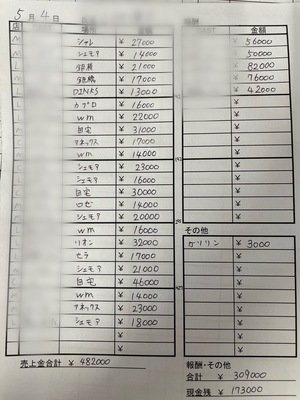 5月4日
報酬
金額
シャレ ¥ 27000
シェモア ¥ 14000
¥ 21000
¥ 17000
DINKS ¥ 13000
カプロ ¥ 16000
wm ¥ 22000
自宅 ¥ 31000
アネックス ¥ 17000
wm ¥ 14000
シェモア ¥ 23000
シェモア ¥ 16000
自宅 ¥ 30000
ロゼ ¥ 14000
シェモア ¥ 20000
wm ¥ 16000
リオン ¥ 32000
セラ ¥ 17000
シェモア ¥ 21000
自宅 ¥ 46000
wm ¥ 14000
アネックス ¥ 23000
シェモア ¥ 18000
¥
¥
売上金合計 ¥ 482000
¥ 56000
50000
¥ 82000
¥ 76000
¥ 42000
¥
¥
¥
¥
¥
¥
¥
¥
¥
¥
その他
ケリリン ¥ 3000
¥
¥
¥
¥
¥
¥
¥
報酬・その他
合計 ¥ 309000
現金残 ¥ 173000